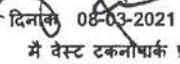 दिनांक 08-03-2021
मै वेस्ट टकनोपार्क